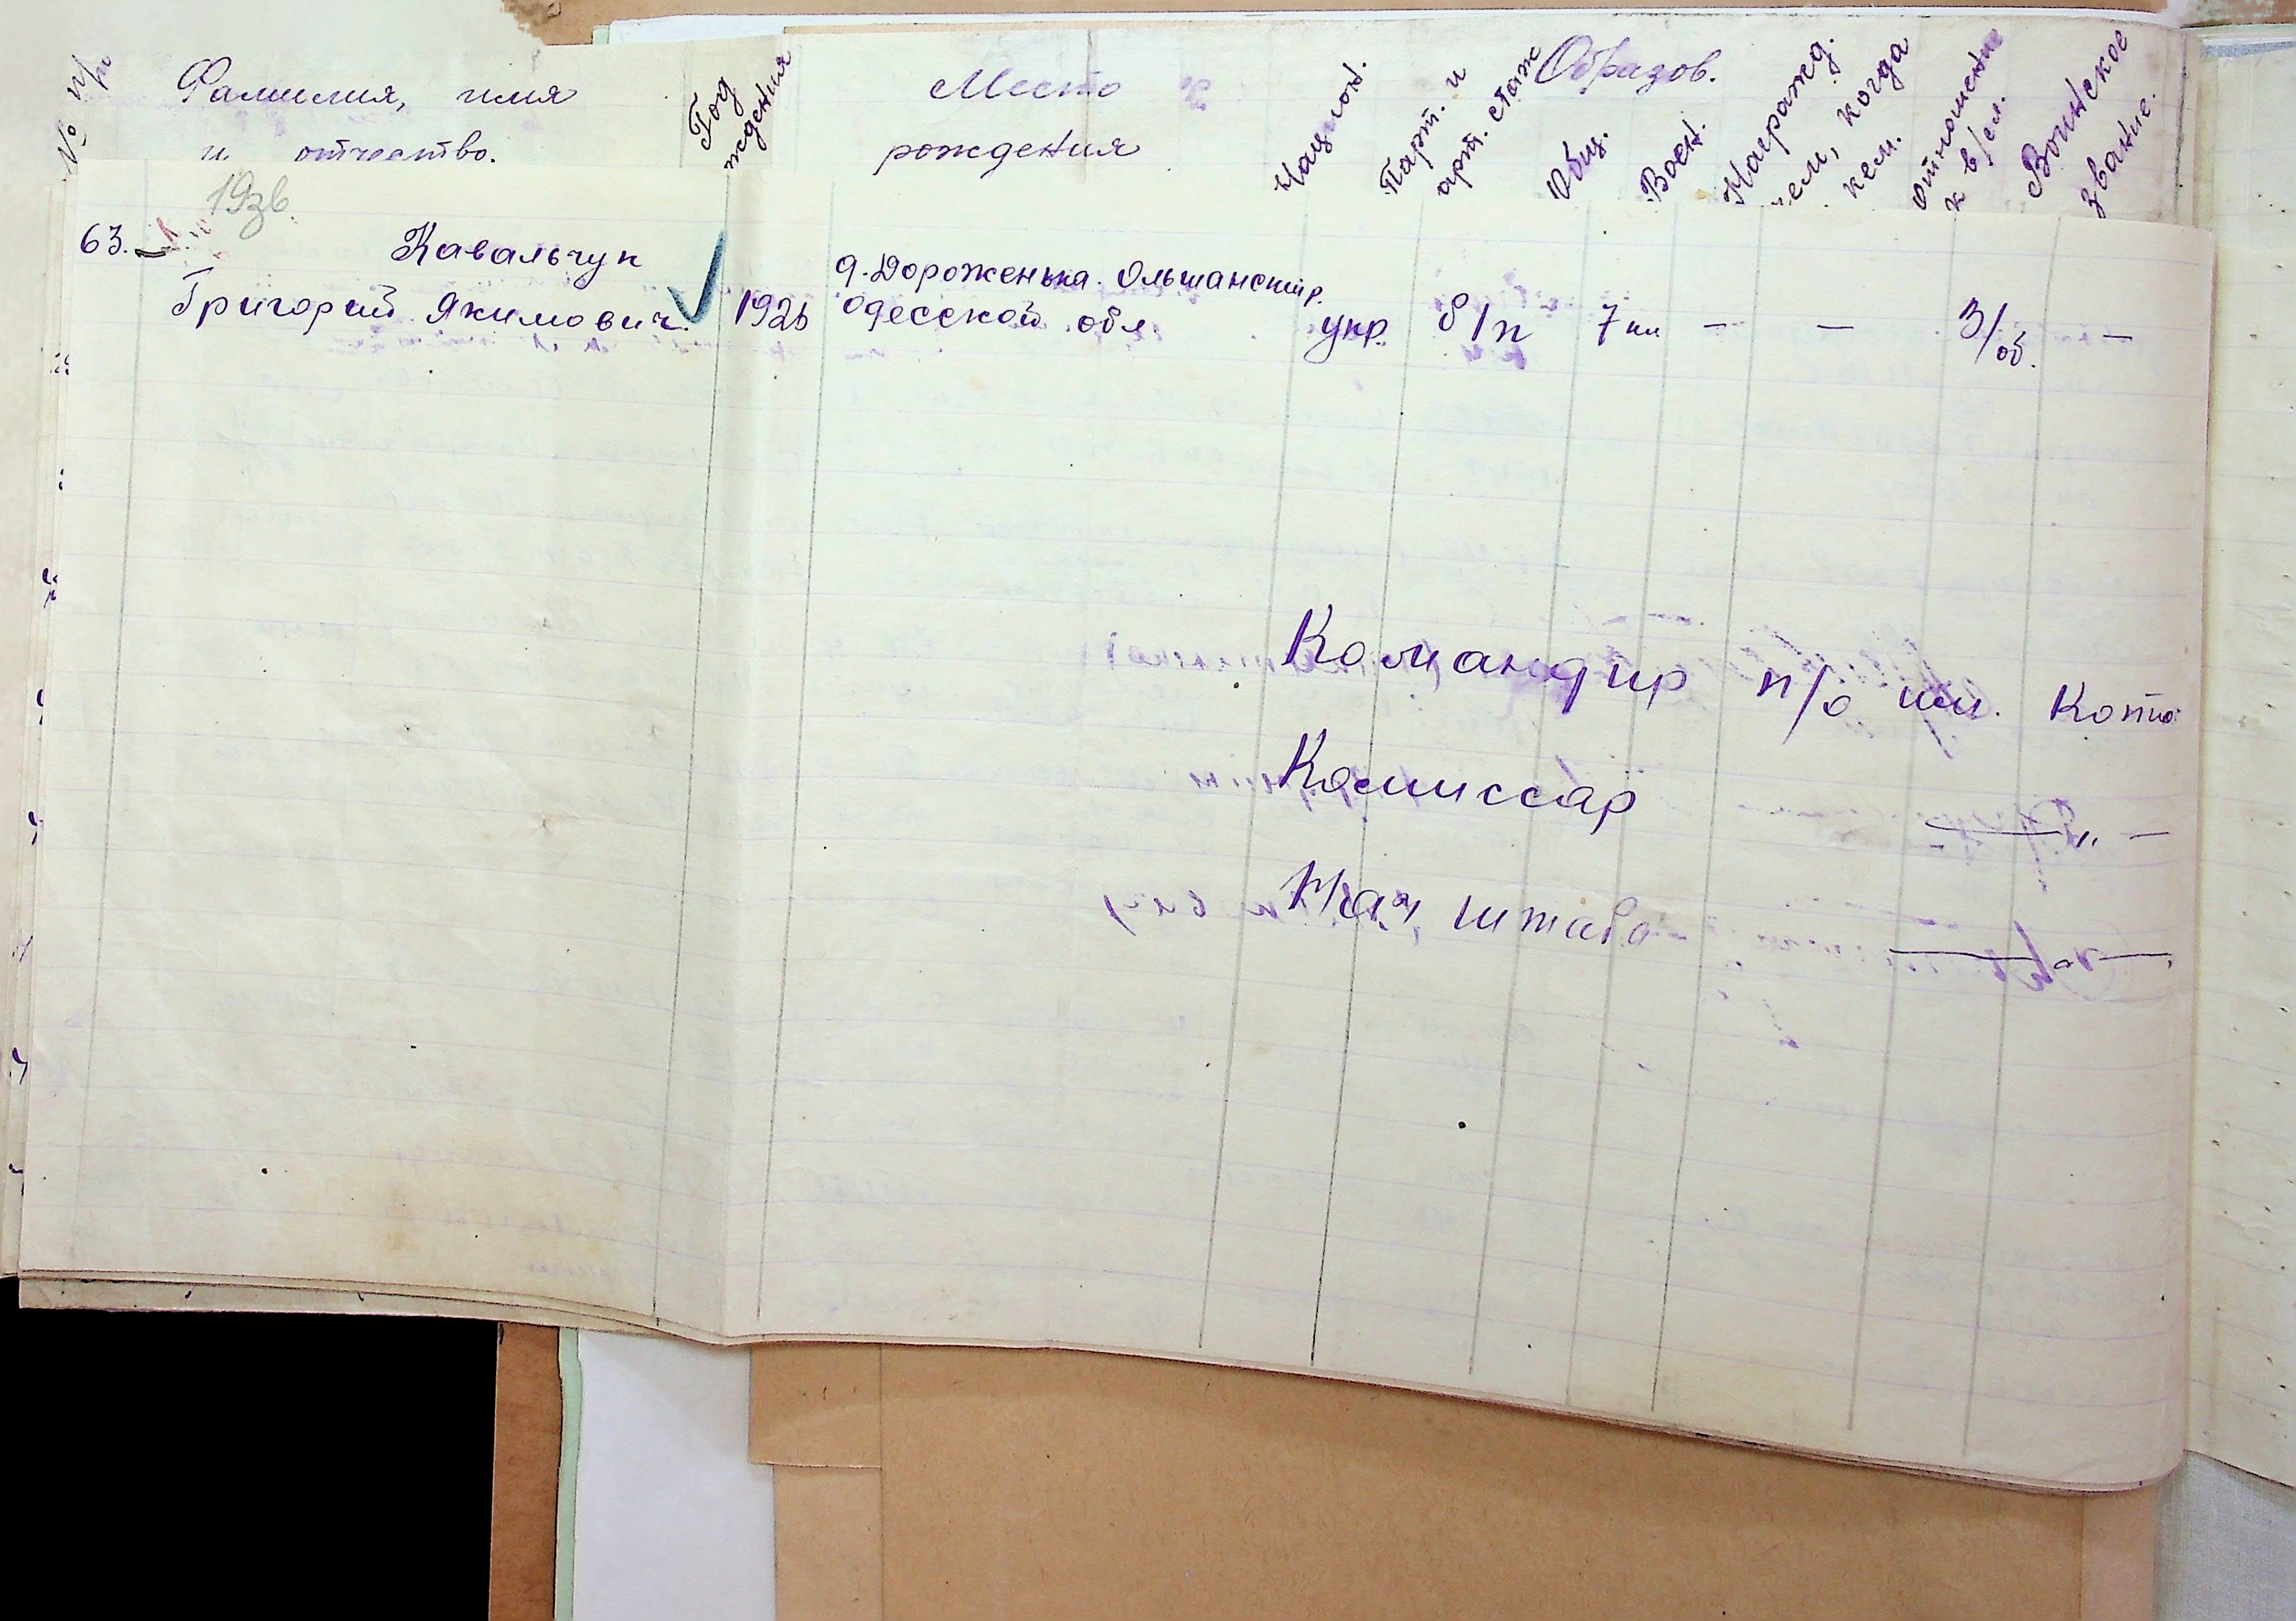 № п/п Фамилия, имя и отчество. Год ждения Место рождения Национ. Парт. и арт. стаж Образов. Общ. Воен. Награжд. чем, когда кем. отношение к в/сл. Воинское звание.
19зв.
63. Кавальчук
Григорий Якимович. 1926 д. Дороженька. Ольшанский р.
Одесской обл. укр. б/п 7 кл — — З/об. —
Командир п/о им. Кото
Комиссар — " —
Нач. штаба — " —